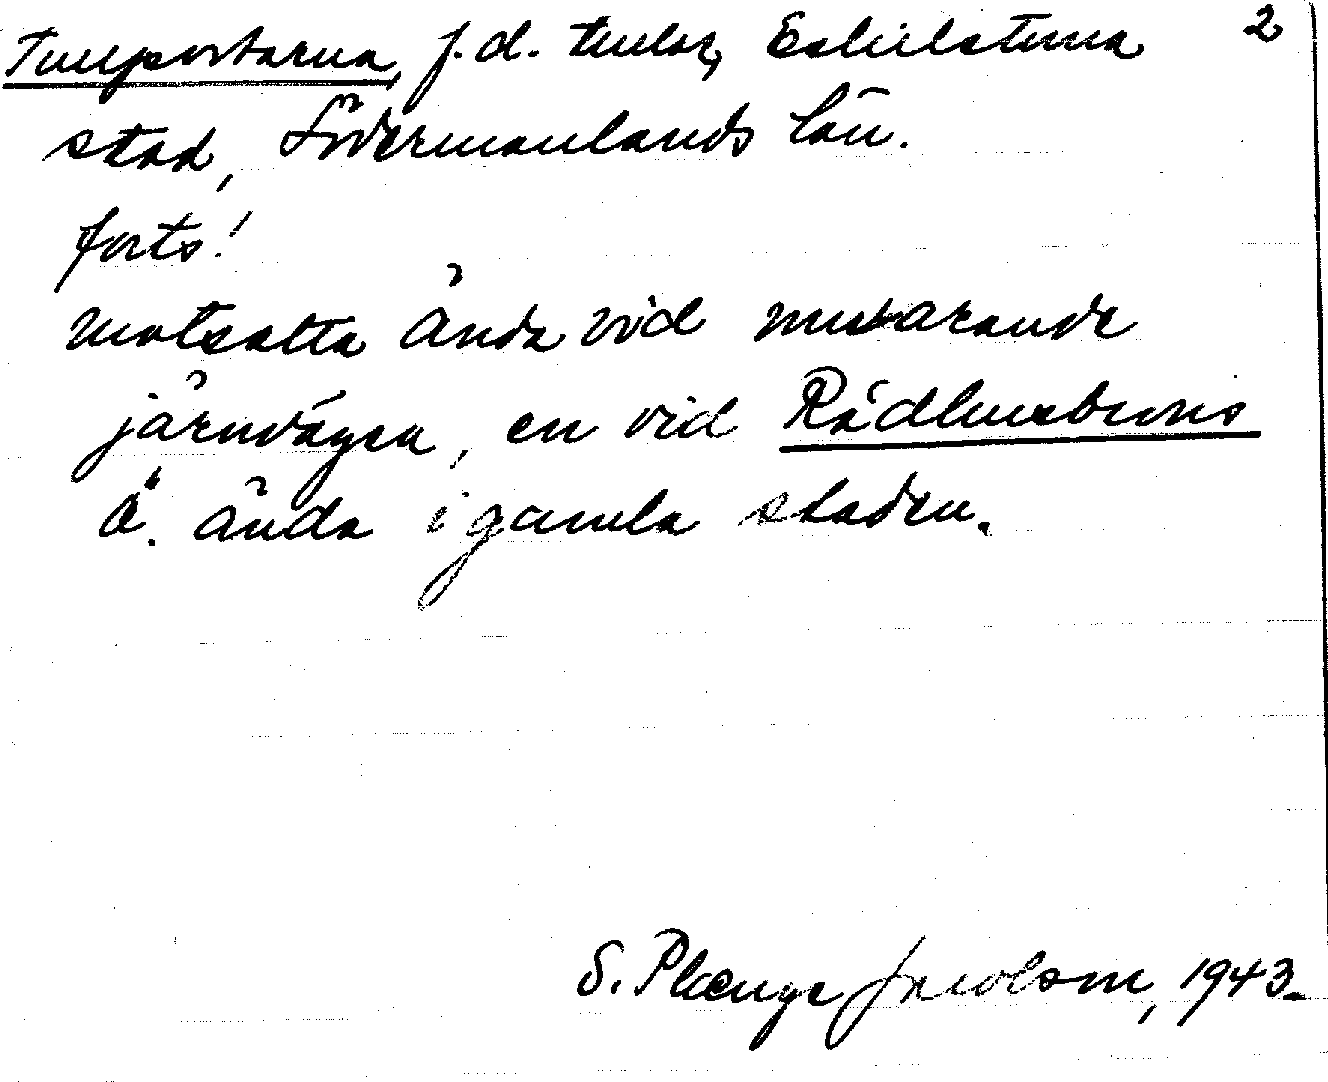 Tullportarna, f.d. tullar, Eskilstuna 2
stad, Södermanlands län.
forts!
motsatta ända vid nuvarande
järnvägen, en vid Rådhusbrons
ö. ända i gamla staden.
S. Plænge Jacobson, 1943.